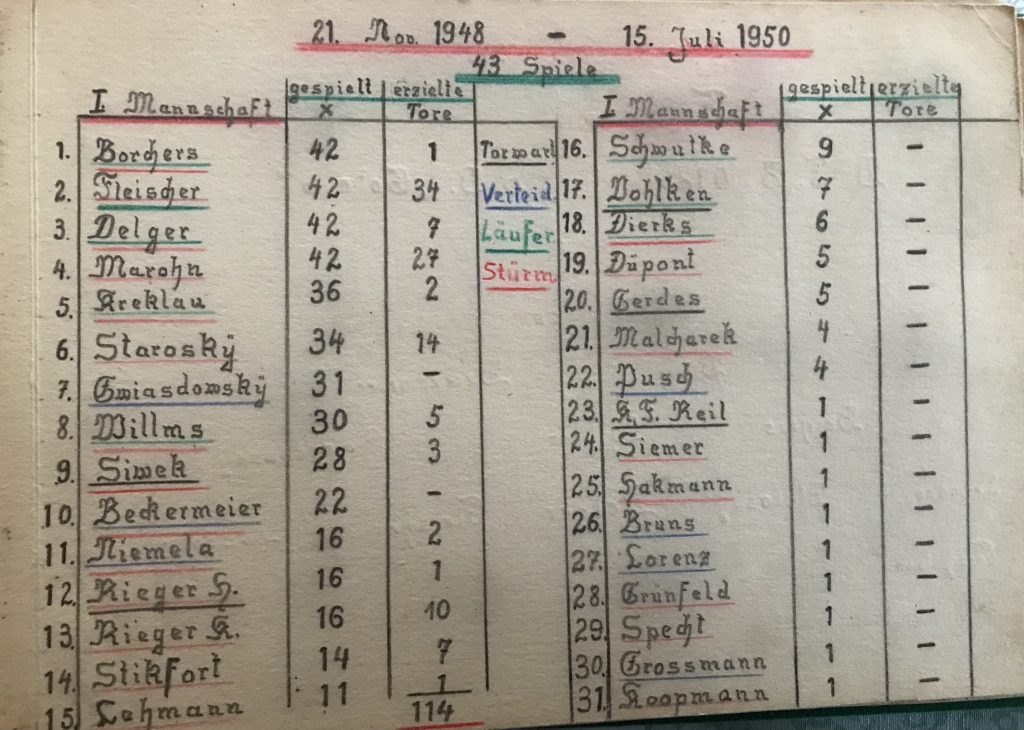 21. Nov. 1948 - 15. Juli 1950
43 Spiele
I. Mannschaft gespielt x erzielte Tore
1. Borchers 42 1
2. Fleischer 42 34
3. Delger 42 7
4. Marohn 42 27
5. Kreklau 36 2
6. Staroskÿ 34 14
7. Gwiasdowskÿ 31 -
8. Willms 30 5
9. Siwek 28 3
10. Beckermeier 22 -
11. Niemela 16 2
12. Rieger H. 16 1
13. Rieger K. 16 10
14. Stikfort 14 7
15. Lehmann 11 1
114
Torwart
Verteid.
Läufer
Stürm.
I. Mannschaft gespielt x erzielte Tore
16. Schwutke 9 -
17. Vohlken 7 -
18. Dierks 6 -
19. Düpont 5 -
20. Gerdes 5 -
21. Malcharek 4 -
22. Pusch 4 -
23. K. F. Reil 1 -
24. Siemer 1 -
25. Hakmann 1 -
26. Bruns 1 -
27. Lorenz 1 -
28. Grünfeld 1 -
29. Specht 1 -
30. Grossmann 1 -
31. Koopmann 1 -